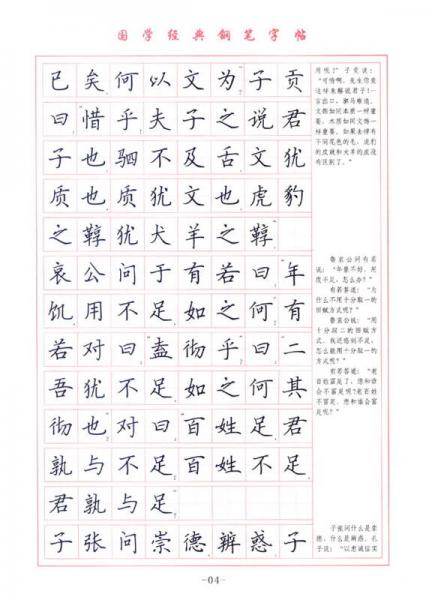 国学经典钢笔字帖
已矣何以文为子贡
曰惜乎夫子之说君
子也驷不及舌文犹
质也质犹文也虎豹
之鞟犹犬羊之鞟
哀公问于有若曰年
饥用不足如之何有
若对曰盍彻乎曰二
吾犹不足如之何其
彻也对曰百姓足君
孰与不足百姓不足
君孰与足
子张问崇德辨惑子
用呢？”子贡说：
“可惜啊，先生你竟
这样来解说君子！一
言出口，驷马难追。
文饰如同本质一样重
要，本质如同文饰一
样重要。如果去掉有
不同花色的毛，虎豹
的皮就和犬羊的皮没
有区别了。”
鲁哀公问有若
说：“年景不好，用
度不足，怎么办？”
有若答道：“为
什么不用十分取一的
田赋方式呢？”
鲁哀公说：“用
十分取二的田赋方
式，我还感到不足，
怎么能用十分取一的
方式呢？”
有若答道：“老
百姓富足了，您和谁
会不富足呢？老百姓
不富足，您和谁会富
足呢？”
子张问什么是崇
德、什么是辨惑。孔
子说：“以忠诚信实
-04-